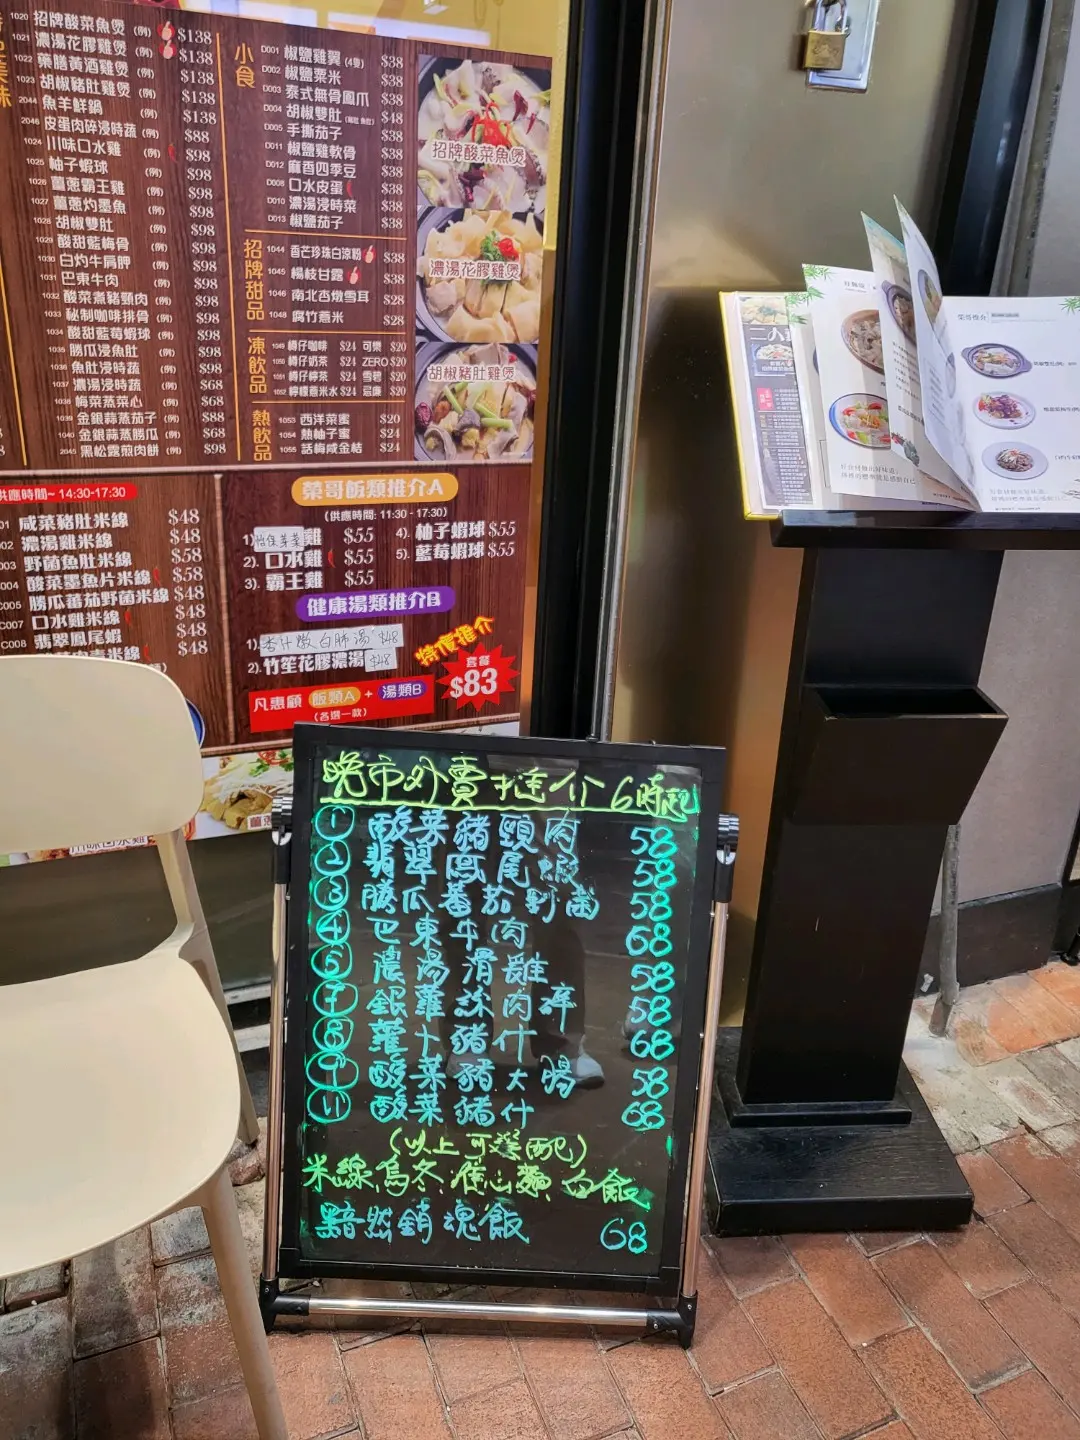 1020 招牌酸菜魚煲 (例) $138
1021 濃湯花膠雞煲 (例) $138
1022 藥膳黃酒雞煲 (例) $138
1023 胡椒豬肚雞煲 (例) $138
2044 魚羊鮮鍋 (例) $138
2046 皮蛋肉碎浸時蔬 (例) $88
1024 川味口水雞 (例) $98
1025 柚子蝦球 (例) $98
1026 薑蔥霸王雞 (例) $98
1027 薑蔥灼墨魚 (例) $98
1028 胡椒雙肚 (例) $98
1029 酸甜藍梅骨 (例) $98
1030 白灼牛肩胛 (例) $98
1031 巴東牛肉 (例) $98
1032 酸菜煮豬頸肉 (例) $98
1033 秘制咖啡排骨 (例) $98
1034 酸甜藍莓蝦球 (例) $98
1035 勝瓜浸魚肚 (例) $98
1036 魚肚浸時蔬 (例) $98
1037 濃湯浸時蔬 (例) $68
1038 梅菜蒸菜心 (例) $68
1039 金銀蒜蒸茄子 (例) $88
1040 金銀蒜蒸勝瓜 (例) $68
2045 黑松露煎肉餅 (例) $98
小食
D001 椒鹽雞翼 (4隻) $38
D002 椒鹽粟米 $38
D003 泰式無骨鳳爪 $38
D004 胡椒雙肚 $48
D005 手撕茄子 $38
D011 椒鹽雞軟骨 $38
D012 麻香四季豆 $38
D008 口水皮蛋 $38
D010 濃湯浸時菜 $38
D013 椒鹽茄子 $38
招牌甜品
1044 香芒珍珠白涼粉 $38
1045 楊枝甘露 $38
1046 南北杏燉雪耳 $28
1048 腐竹薏米 $28
凍飲品
1049 樽仔咖啡 $24 可樂 $20
1050 樽仔奶茶 $24 ZERO $20
1051 樽仔檸茶 $24 雪碧 $20
1052 檸檬薏米水 $24 忌廉 $20
熱飲品
1053 西洋菜蜜 $20
1054 熱柚子蜜 $24
1055 話梅咸金桔 $24
招牌酸菜魚煲
濃湯花膠雞煲
胡椒豬肚雞煲
供應時間~ 14:30-17:30
01 咸菜豬肚米線 $48
02 濃湯雞米線 $48
003 野菌魚肚米線 $58
004 酸菜墨魚片米線 $58
C005 勝瓜蕃茄野菌米線 $48
C007 口水雞米線 $48
C008 翡翠鳳尾蝦 $48
榮哥飯類推介A
(供應時間: 11:30 - 17:30)
1) 雞 $55
2). 口水雞 $55
3). 霸王雞 $55
4). 柚子蝦球 $55
5). 藍莓蝦球 $55
健康湯類推介B
1). 杏汁燉白肺湯 $48
2). 竹笙花膠濃湯 $48
特價推介
套餐
$83
凡惠顧 飯類A + 湯類B
(各選一款)
晚市外賣推介 6時起
① 酸菜豬頸肉 58
② 翡翠鳳尾蝦 58
③ 勝瓜蕃茄野菌 58
④ 巴東牛肉 68
⑤ 濃湯滑雞 58
⑦ 銀蘿浸肉碎 58
⑧ 蘿卜豬什 68
酸菜豬大腸 58
⑪ 酸菜豬什 68
(以上可選配)
米線,烏冬,淮山麵,白飯
黯然銷魂飯 68